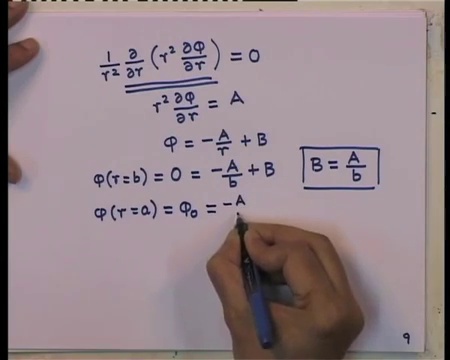 1/r² ∂/∂r (r² ∂φ/∂r) = 0
r² ∂φ/∂r = A
φ = -A/r + B
φ(r=b) = 0 = -A/b + B    B = A/b
φ(r=a) = φ₀ = -A
9